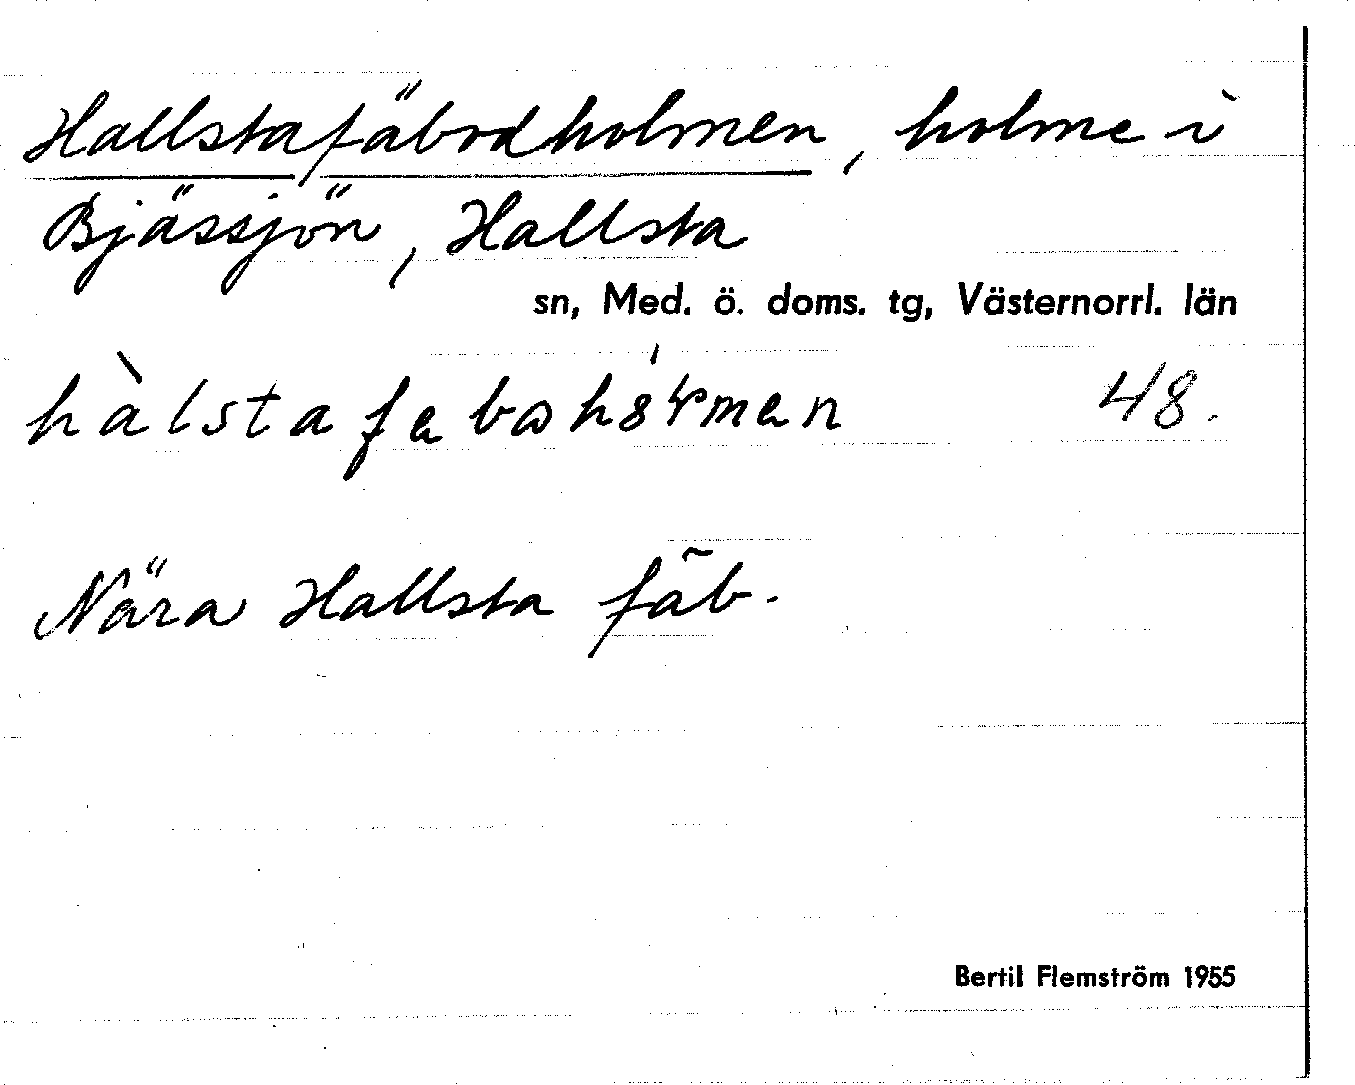 Hallstafäbodholmen, holme i
Bjässjön, Hallsta
sn, Med. ö. doms. tg, Västernorrl. län
48.
Nära Hallsta fäb.
Bertil Flemström 1955